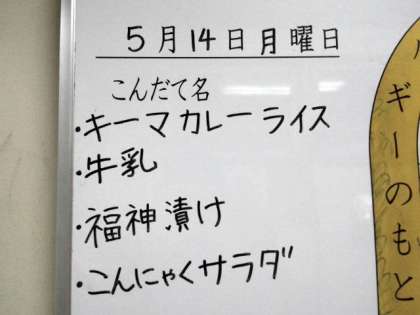 5月14日月曜日
こんだて名
・キーマカレーライス
・牛乳
・福神漬け
・こんにゃくサラダ
ギーのもと